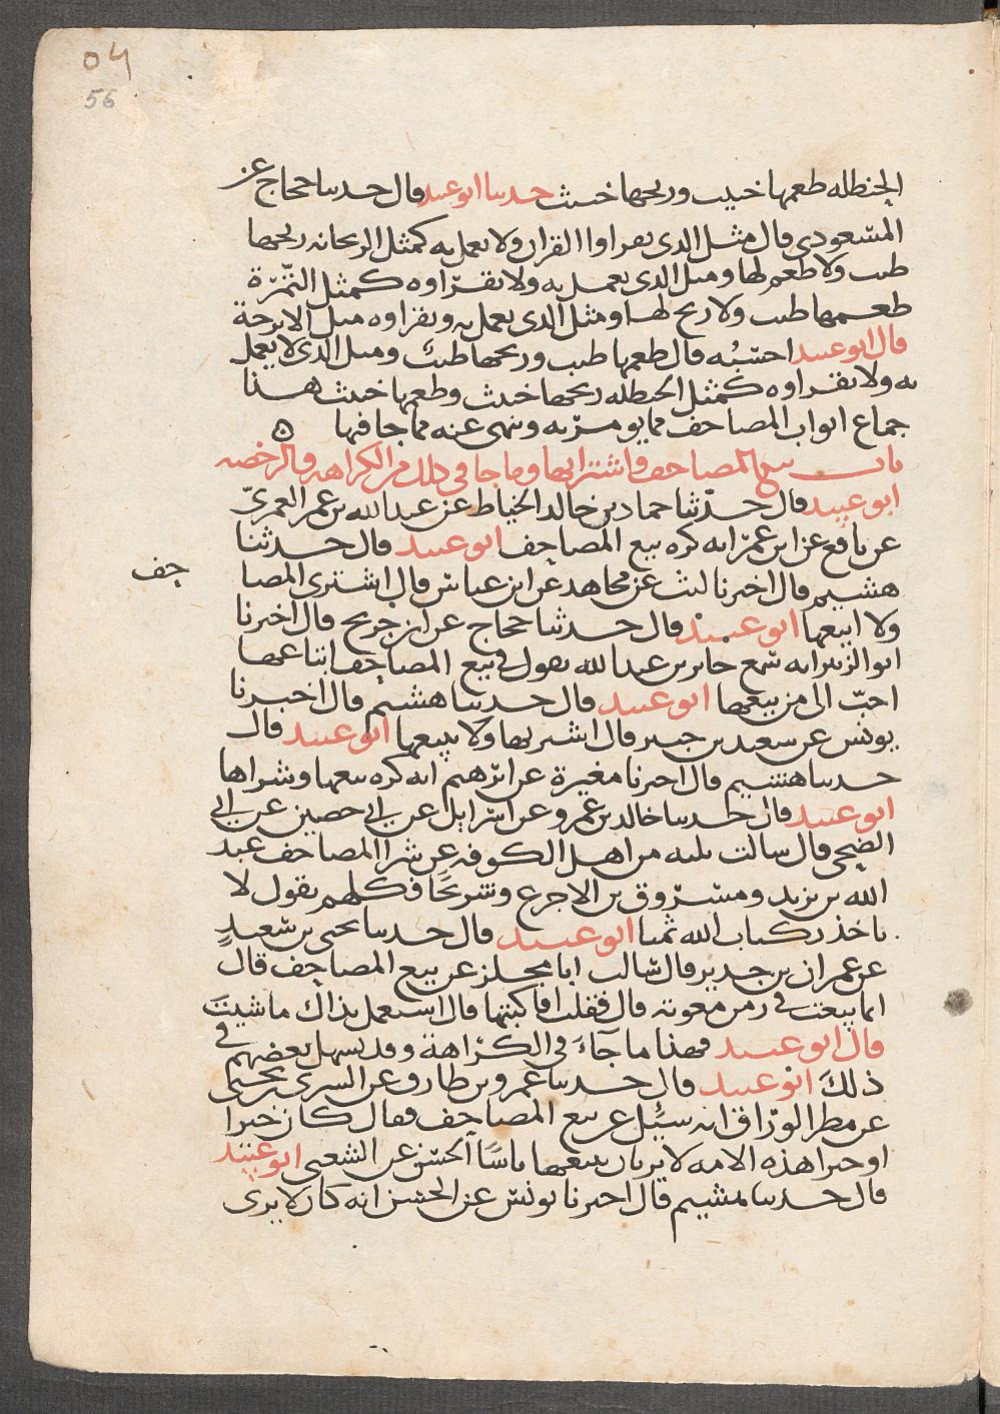 ٥٦
56
الحنظله طعمها خبيث وريحها خبيث حدثنا ابو عبيد قال حدثنا حجاج عن
المسعودى قال مثل الذى يقراوا القران ولا يعمل به كمثل الريحانه ريحها
طيب ولا طعم لها ومثل الذى يعمل به ولا يقرّاوه كمثل التمّرة
طعمها طيب ولا ريح لها ومثل الذى يعمل به ويقراوه مثل الاترجة
قال ابو عبيد احسّبُه قال طعمها طيب وريحها طيبٌ ومثل الذى لا يعمل
به ولا يقراوه كمثل الحنظله ريحها خبيث وطعمها خبيث هذا
جماع ابواب المصاحف مما يومرّ به وينهى عنه مما جا فيها ه
باب بيع المصاحف واشترايها وما جا فى ذلك من الكراهه والرخصه
ابو عبيد قال حدّثنا حماد بن خالد الخياط عن عبد الله بن عمر العمرىّ
عن نافع عن ابن عمرّ انه كره بيع المصاحف ابو عبيد قال حدثنا
هشيم قال اخبرنا ليث عن مجاهد عن ابن عباس قال اشترى المصا
حف
ولا ابيعها ابو عبيد قال حدثنا حجاج عن ابن جريج قال اخبرنا
ابوا الزبير انه سّمع جابر بن عبد الله يقول فى بيع المصاحف ابتاعها
احبّ الى من بيعها ابو عبيد قال حدثنا هشيم قال اخبرنا
يونس عن سعيد بن جبير قال اشتريها ولا يبيعها ابو عبيد قال
حدثنا هشيم قال اخبرنا مغيرة عن ابرّهيم انه كره بيعها وشراها
ابو عبيد قال حدثنا خالد بن عمرو عن اسّرايل عن ابى حصين عن ابى
الضحى قال سالت ثلثه من اهل الكوفه عن شرا المصاحف عبد
الله بن يزيد ومسّرّوق بن الاجرع وشريحًا فكلهم يقول لا
ناخذ لكتاب الله ثمنا ابو عبيد قال حدثنا يحيى بن سّعيدٍ
عن عمران بن جدير قال سّالت ابا مجلز عن بيع المصاحف قال
انما بيعت فى زمن معويه قال فقلت افاكتبها قال استعمل يداك ما شيتَ
قال ابو عبيد فهذا ما جآءَ فى الكرّاهة وقد يسهل بعضهم فى
ذلكَ ابو عبيد قال حدثنا عمرو بن طارق عن السرى بن يحيى
عن مطر الورّاق انه سيُئل عن بيع المصاحف فقال كان خبرا
او حبرا هذه الامه لا يريان ببيعها باسًا الحسّن عن الشعبى ابو عبيد
قال حدثنا هشيم قال اخبرنا يونسّ عن الحسّن انه كان لا يرى